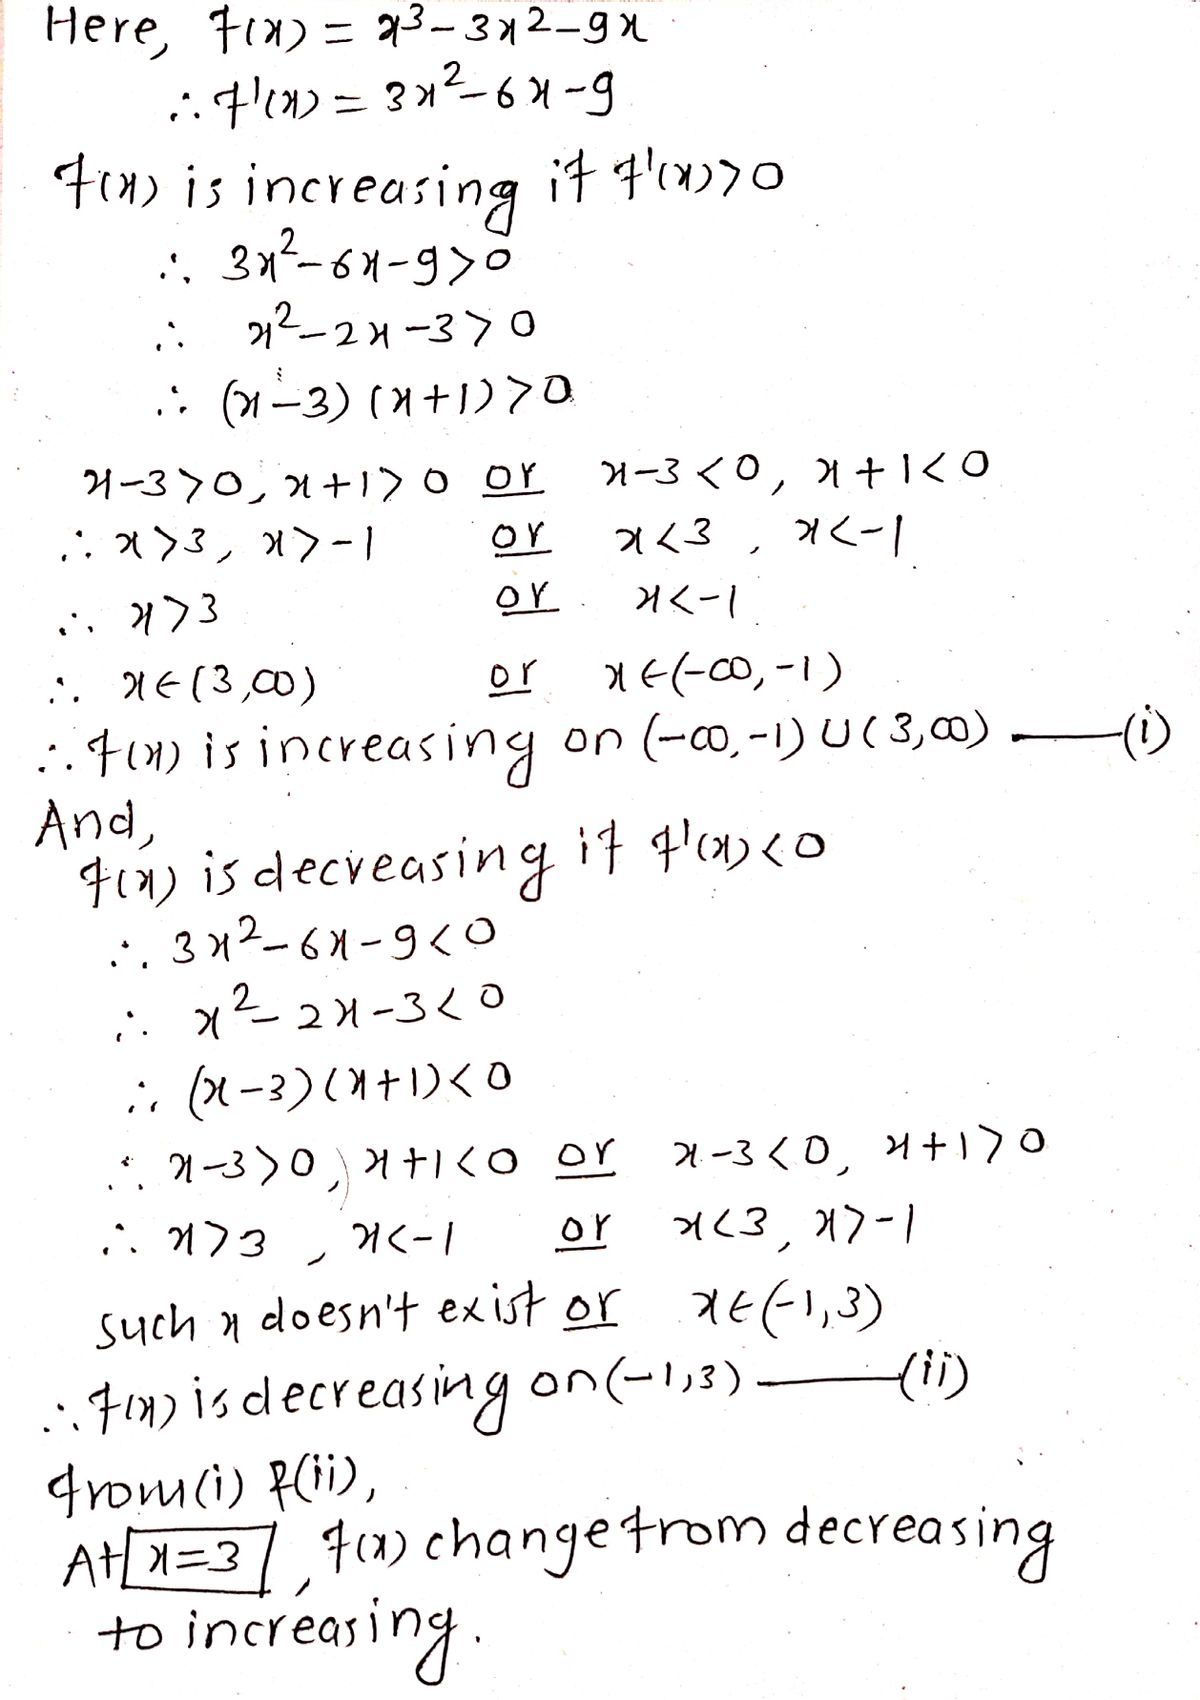 Here, f(x) = x³-3x2-9x
∴ f'(x) = 3x²-6x-9
f(x) is increasing if f'(x)>0
∴ 3x²-6x-9>0
∴ x²-2x-3>0
∴ (x-3)(x+1)>0
x-3>0, x+1>0 or x-3<0, x+1<0
∴ x>3, x>-1 or x<3, x<-1
∴ x>3 or x<-1
∴ x∈(3,∞) or x∈(-∞,-1)
∴ f(x) is increasing on (-∞,-1)∪(3,∞) —(i)
And,
f(x) is decreasing if f'(x)<0
∴ 3x²-6x-9<0
∴ x²-2x-3<0
∴ (x-3)(x+1)<0
∴ x-3>0, x+1<0 or x-3<0, x+1>0
∴ x>3, x<-1 or x<3, x>-1
such x doesn't exist or x∈(-1,3)
∴ f(x) is decreasing on (-1,3) —(ii)
from (i) & (ii),
At x=3, f(x) change from decreasing
to increasing.